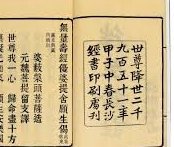 世尊降世二千
九百五十一年
甲子中春長沙
經書印刷局刊
無量壽經優婆提舍願生偈
婆藪槃頭菩薩造
元魏菩提留支譯
世尊我一心 歸命盡十方